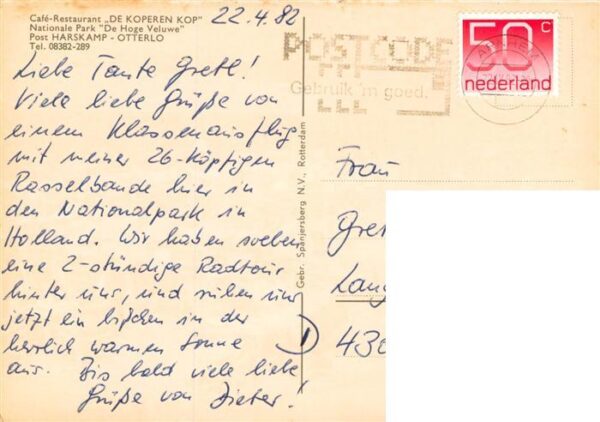 Café-Restaurant „DE KOPEREN KOP"
Nationale Park "De Hoge Veluwe"
Post HARSKAMP - OTTERLO
Tel. 08382-289
22.4.82
Liebe Tante Gretl!
Viele liebe Grüße von
einem Klassenausflug
mit meiner 26-köpfigen
Rasselbande hier in
den Nationalpark in
Holland. Wir haben soeben
eine 2-stündige Radtour
hinter uns, und ruhen uns
jetzt ein bißchen in der
herrlich warmen Sonne
aus. Bis bald viele liebe
Grüße von Dieter!
Gebr. Spanjersberg N.V., Rotterdam
POSTCODE
Gebruik 'm goed.
50 c
nederland
Frau
Gret
Lang
430
D